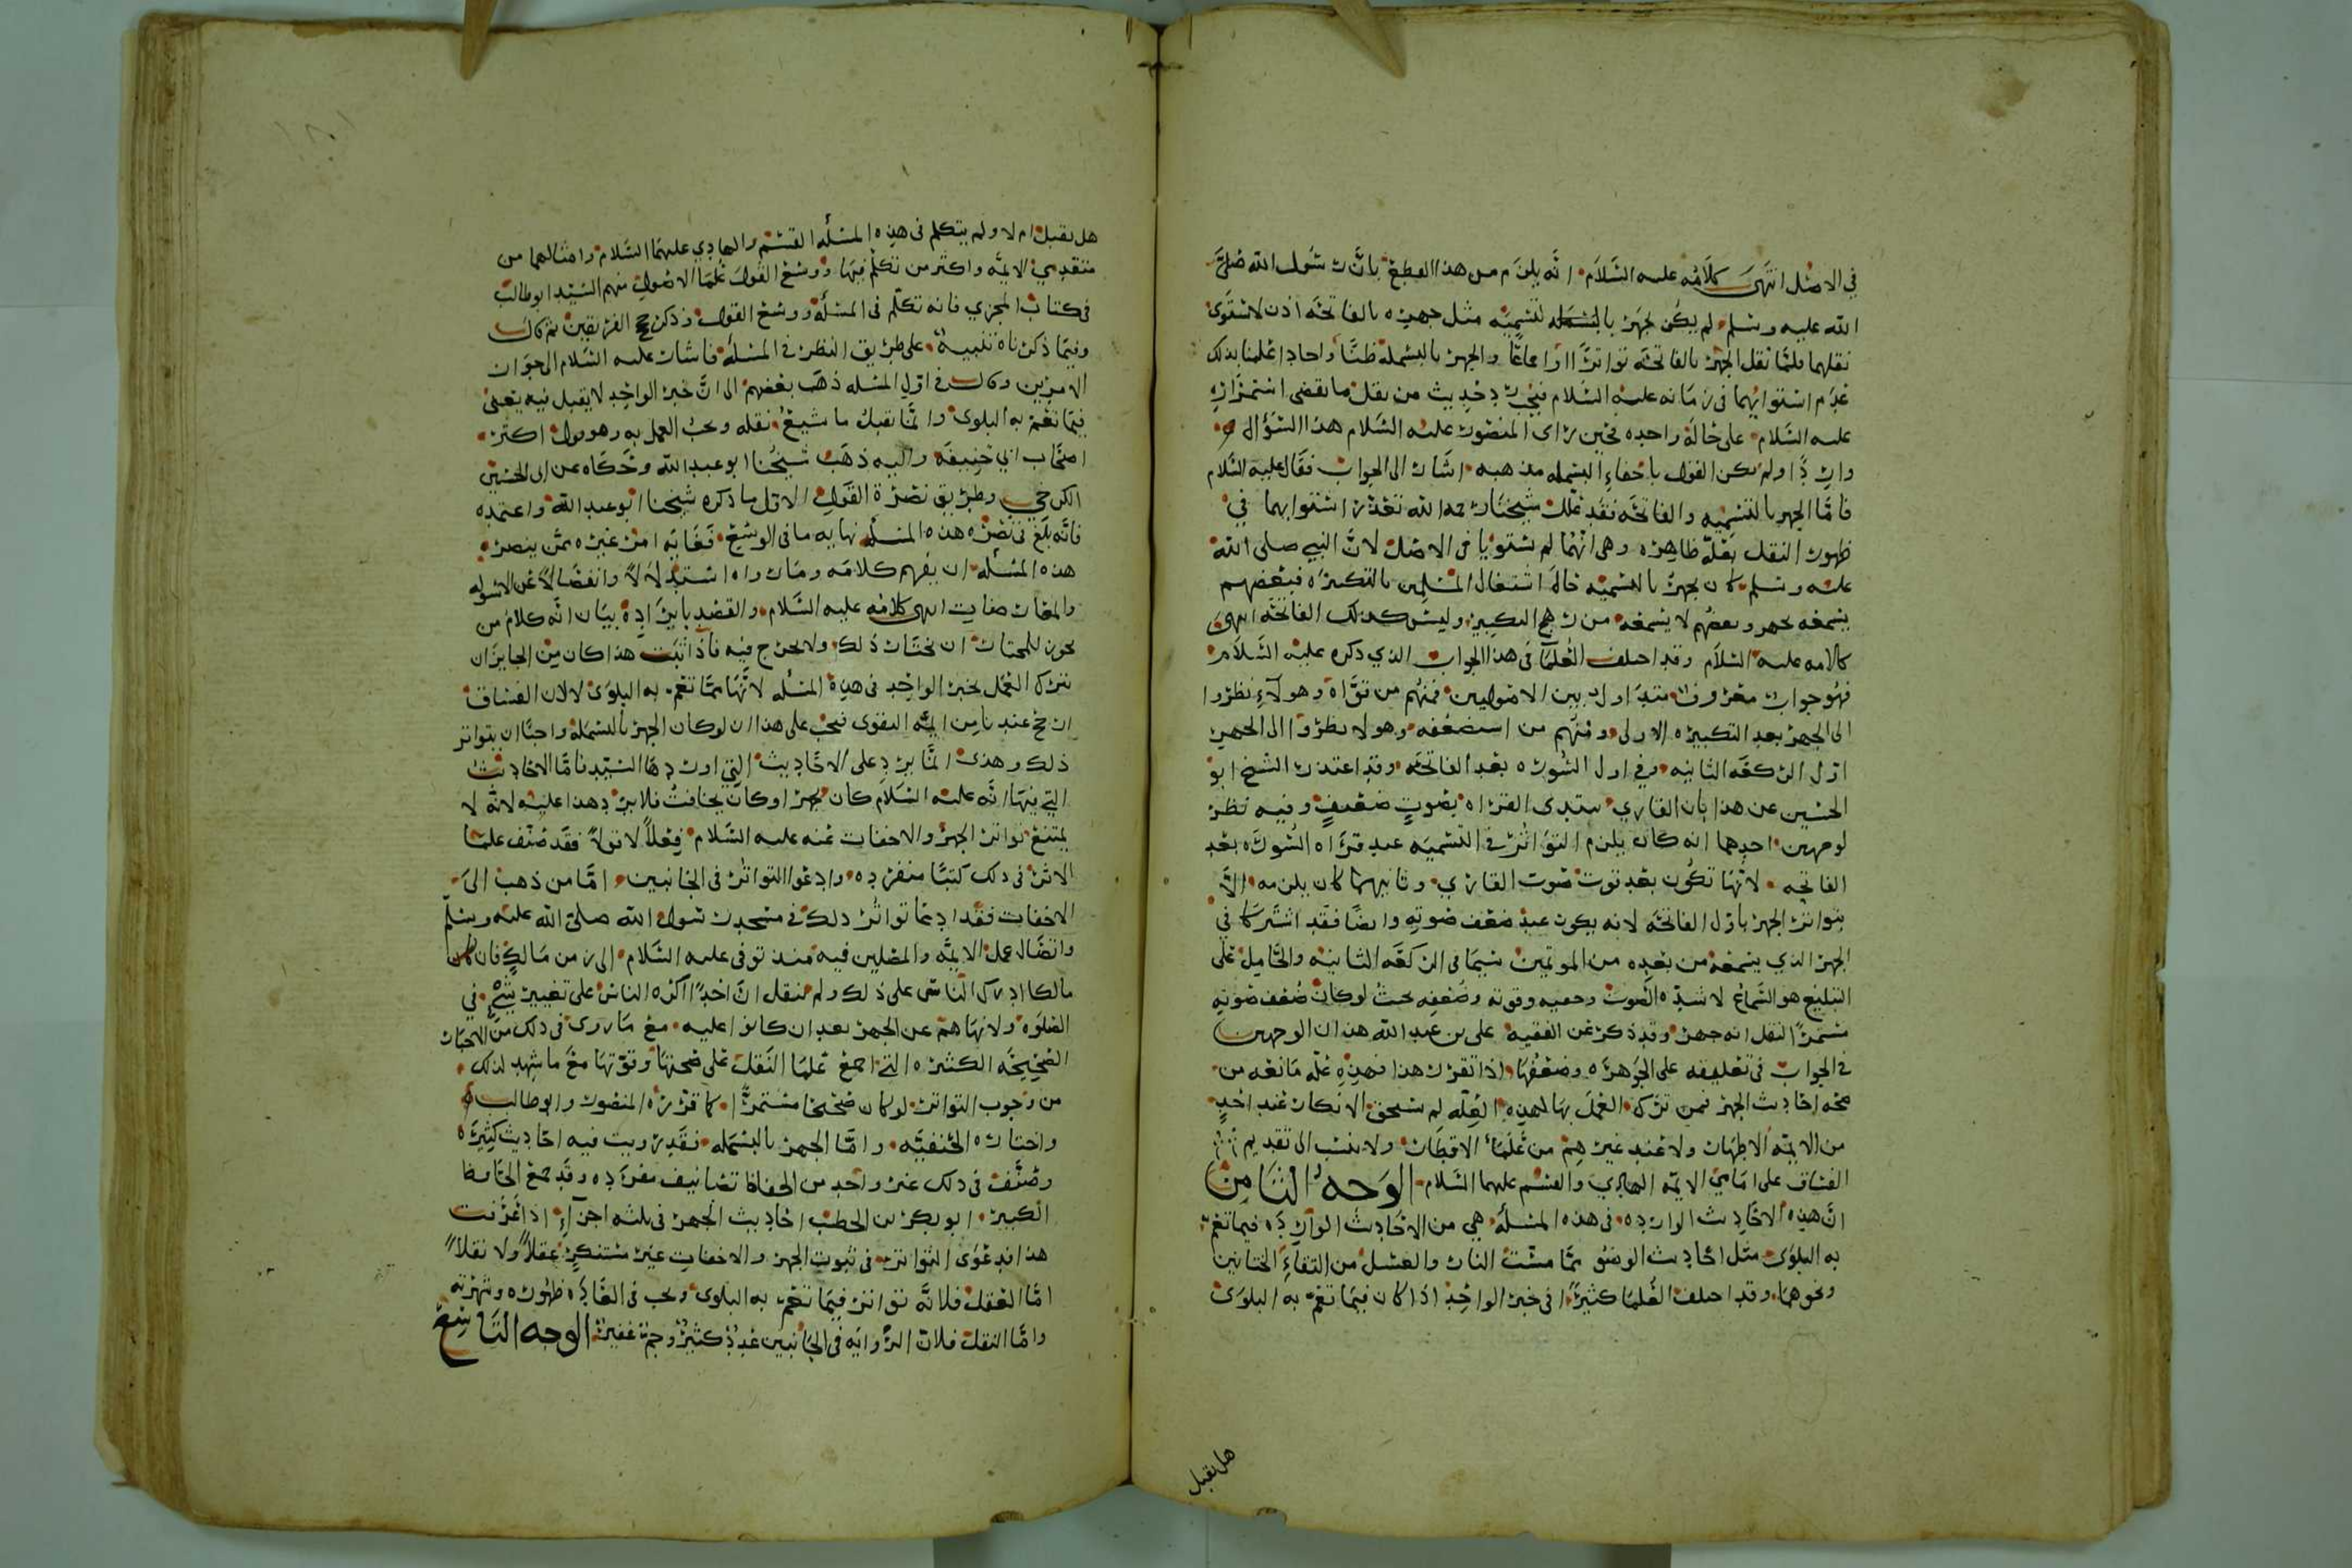 في الاصل انتهى كلامه عليه السلام انه يلزم من هذا القطع بان رسول الله صلى
الله عليه وسلم لم يكن يجهر بالبسملة للتسمية مثل جهره بالفاتحة اذن لاستوى
نقلهما فلما نقل الجهر بالفاتحة تواترا اواجماعا والجهر بالبسملة ظنا واحادا علمنا بذلك
عدم استوائهما في زمانه عليه السلام فيجرد حديث من نقل ما يقضي استمراره
عليه السلام على حالة واحدة فحين راى المنصور عليه السلام هذا السؤال
واردا ولم يكن القول باخفاء البسملة مذهبه اشار الى الجواب فقال عليه السلام
فاما الجهر بالتسمية والفاتحة فقد علل شيخنا رحمه الله تعذر استوائهما في
ظهور النقل بعلة ظاهرة وهي انهما لم يستويا في الاصل لان النبي صلى الله
عليه وسلم كان يجهر بالتسمية حال اشتغال المسلمين بالتكبيرة فبعضهم
يسمعه يجهر وبعضهم لا يسمعه من رهج التكبير وليس كذلك الفاتحة انتهى
كلامه عليه السلام وقد اختلف العلما في هذا الجواب الذي ذكره عليه السلام
فهو جواب معروف متداول بين الاصوليين فمنهم من قواه وهولآء نظروا
الى الجهر بعد التكبيرة الاولى ومنهم من استضعفه وهولا نظروا الى الجهر
اول الركعة الثانية وفي اول السورة بعد الفاتحة وقد اعتذر الشيخ ابو
الحسين عن هذا بان القاري يبتدى القراه بصوت ضعيف وفيه نظر
لوجهين احدهما انه كان يلزم التواتر في التسمية عند قراه السورة بعد
الفاتحه لانها تكون بعد قوت صوت القاري وثانيهما كان يلزمه الا
يتواتر الجهر باول الفاتحة لانه يكون عند ضعف صوته وايضا فقد اشتركا في
الجهر الذي يسمعه من بعده من الموتمين سيما في الركعة الثانية والحامل على
التبليغ هو السماع لا شدة الصوت وقوته وضعفه بحيث لو كان ضعف صوته
مستمرا لنقل انه جهر وقد ذكر عن الفقيه علي بن عبد الله هذان الوجهين
في الجواب في تعليقه على الجوهرة وضعفها اذا تقرر هذا فهذه علة مانعه من
صحه احاديث الجهر فمن ترك العمل بها لهذه العلة لم يستحق الانكار عند احد
من الايمه الاطهار ولا عند غيرهم من علماء الاقطار ولا ينسب الى تقديم
الفساق على امامي الايمة الهادي والقسم عليهما السلام الوجه الثامن
ان هذه الاحاديث الواردة في هذه المسئلة هي من الاحاديث الواردة فيما تعم
به البلوى مثل احاديث الوضو مما مست النار والغسل من التقاء الختانين
ونحوهما وقد اختلف العلما كثيرا في خبر الواحد اذا كان فيما تعم به البلوى
هل يقبل
هل يقبل ام لا ولم يتكلم في هذه المسئلة القسم والهادي عليهما السلام وامثالهما من
متقدمي الايمة واكثر من تكلم فيها ووسع القول علما الاصول منهم السيد ابو طالب
في كتاب المجزي فانه تكلم في المسئلة ووسع القول وذكر حجج الفريقين ثم قال
وفيما ذكرناه تنبيه على طريق النظر في المسئلة فاشار عليه السلام الى جواز
الامرين وقال في اول المسله ذهب بعضهم الى ان خبر الواحد لا يقبل فيه يعني
فيما تعم به البلوى وانما يقبل ما شيع نقله وجب العمل به وهو قول اكثر
اصحاب ابي حنيفة واليه ذهب شيخنا ابو عبد الله وحكاه عن ابي الحسين
الكرخي وطريق نصرة القول الاول ما ذكره شيخنا ابو عبد الله واعتمده
فانه بلغ في نصره هذه المسئلة نهاية ما في الوسع فغايه امر غيره ممن ينصر
هذه المسئلة ان يفهم كلامه وما راه استدلالا وانفصالا عن الاسولة
والمعارضات انتهى كلامه عليه السلام والقصد بايراده بيان انه كلام من
يجوز للمختار ان يختار ذلك ولا يحرج فيه فاذا ثبت هذا كان من الجايز ان
يترك العمل بخبر الواحد في هذه المسئله لانها مما تعم به البلوى لا لان الفساق
ارجح عندنا من ايمة التقوى فيجب على هذا ان لو كان الجهر بالبسملة واجبا ان يتواتر
ذلك وهذى انما يرد على الاحاديث التي اوردها السيد فاما الاحاديث
التي فيها انه عليه السلام كان يجهر او كان يخافت فلا يرد هذا عليه لانه لا
يمتنع تواتر الجهر والاخفات عنه عليه السلام فعلا لا قولا فقد صنف علما
الاثر في ذلك كتبا منفرده وادعوا التواتر في الجانبين اما من ذهب الى
الاخفات فقد ادعا تواتر ذلك في مسجد رسول الله صلى الله عليه وسلم
واتصال عمل الايمة والمصلين فيه منذ توفي عليه السلام الى زمن مالك فان
مالكا ادرك الناس على ذلك ولم ينقل ان احدا اكره الناس على تغيير شيء في
الصلوة ولا نهاهم عن الجهر بعد ان كانوا عليه مع ما روى في ذلك من الاخبار
الصحيحة الكثيرة التي اجمع علما النقل على صحتها وقوتها مع ما شهد لذلك
من وجوب التواتر لو كان صحيحا مستمرا كما قرره المنصور وابو طالب
واختاره الحنفية واما الجهر بالبسملة فقد رويت فيه احاديث كثيرة
وصنف في ذلك غير واحد من الحفاظ تصانيف مفرده وقد جمع الحافظ
الكبير ابو بكر بن الخطيب احاديث الجهر في ثلثه اجزآء اذا عرفت
هذا فدعوى التواتر في ثبوت الجهر والاخفات غير مستنكر عقلا ولا نقلا
اما العقل فلانه تواتر فيما تعم به البلوى وجب في العادة ظهوره وشهرته
واما النقل فلان الرواية في الجانبين عدد كثير وجم غفير الوجه التاسع